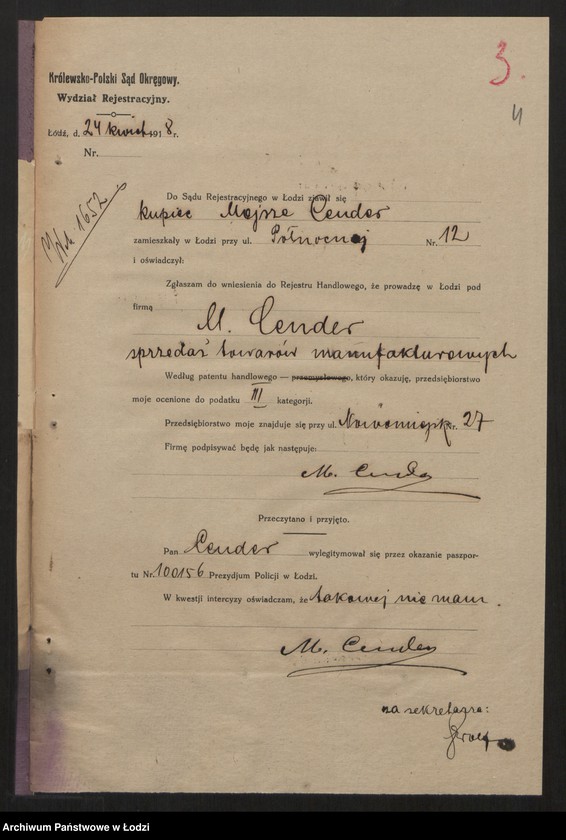 3.
4
Królewsko-Polski Sąd Okręgowy.
Wydział Rejestracyjny.
Łódź, d. 24 kwiet. 1918 r.
Nr.
1652
Do Sądu Rejestracyjnego w Łodzi zjawił się
kupiec Mojsze Cender
zamieszkały w Łodzi przy ul. Północnej Nr. 12
i oświadczył:
Zgłaszam do wniesienia do Rejestru Handlowego, że prowadzę w Łodzi pod
firmą
M. Cender
sprzedaż towarów manufakturowych
Według patentu handlowego — przemysłowego, który okazuję, przedsiębiorstwo
moje ocenione do podatku III kategorji.
Przedsiębiorstwo moje znajduje się przy ul. Nowomiejsk. Nr. 27
Firmę podpisywać będę jak następuje:
M. Cender
Przeczytano i przyjęto.
Pan Cender wylegitymował się przez okazanie paszpor-
tu Nr. 100156 Prezydjum Policji w Łodzi.
W kwestji intercyzy oświadczam, że takowej nie mam.
M. Cender
za sekretarza:
Archiwum Państwowe w Łodzi